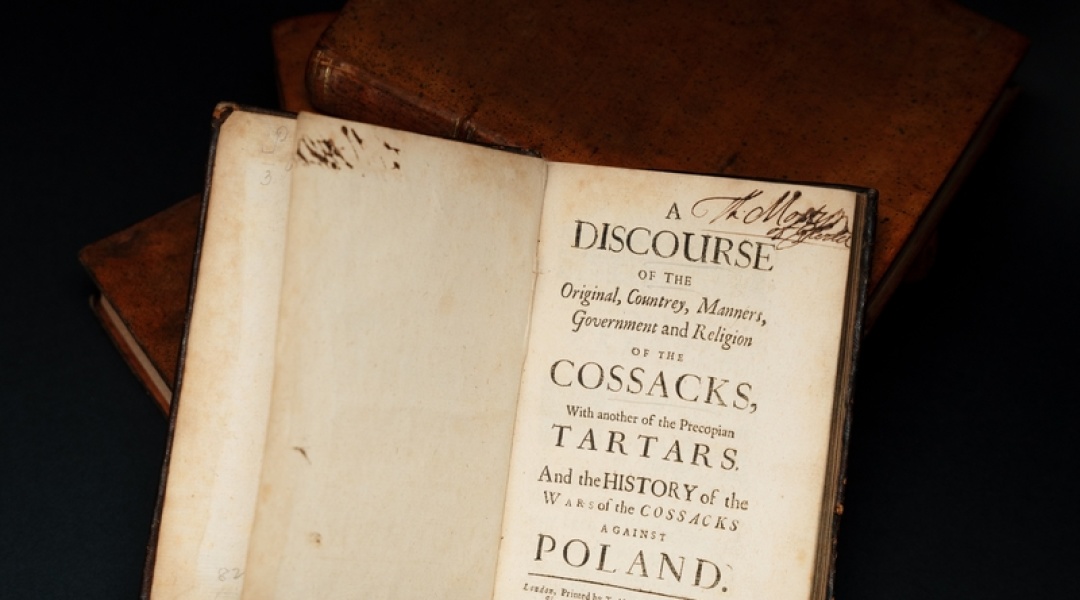 A
DISCOURSE
OF THE
Original, Countrey, Manners,
Government and Religion
OF THE
COSSACKS,
With another of the Precopian
TARTARS.
And the HISTORY of the
WARS of the COSSACKS
AGAINST
POLAND.
London, Printed by T.
3
82